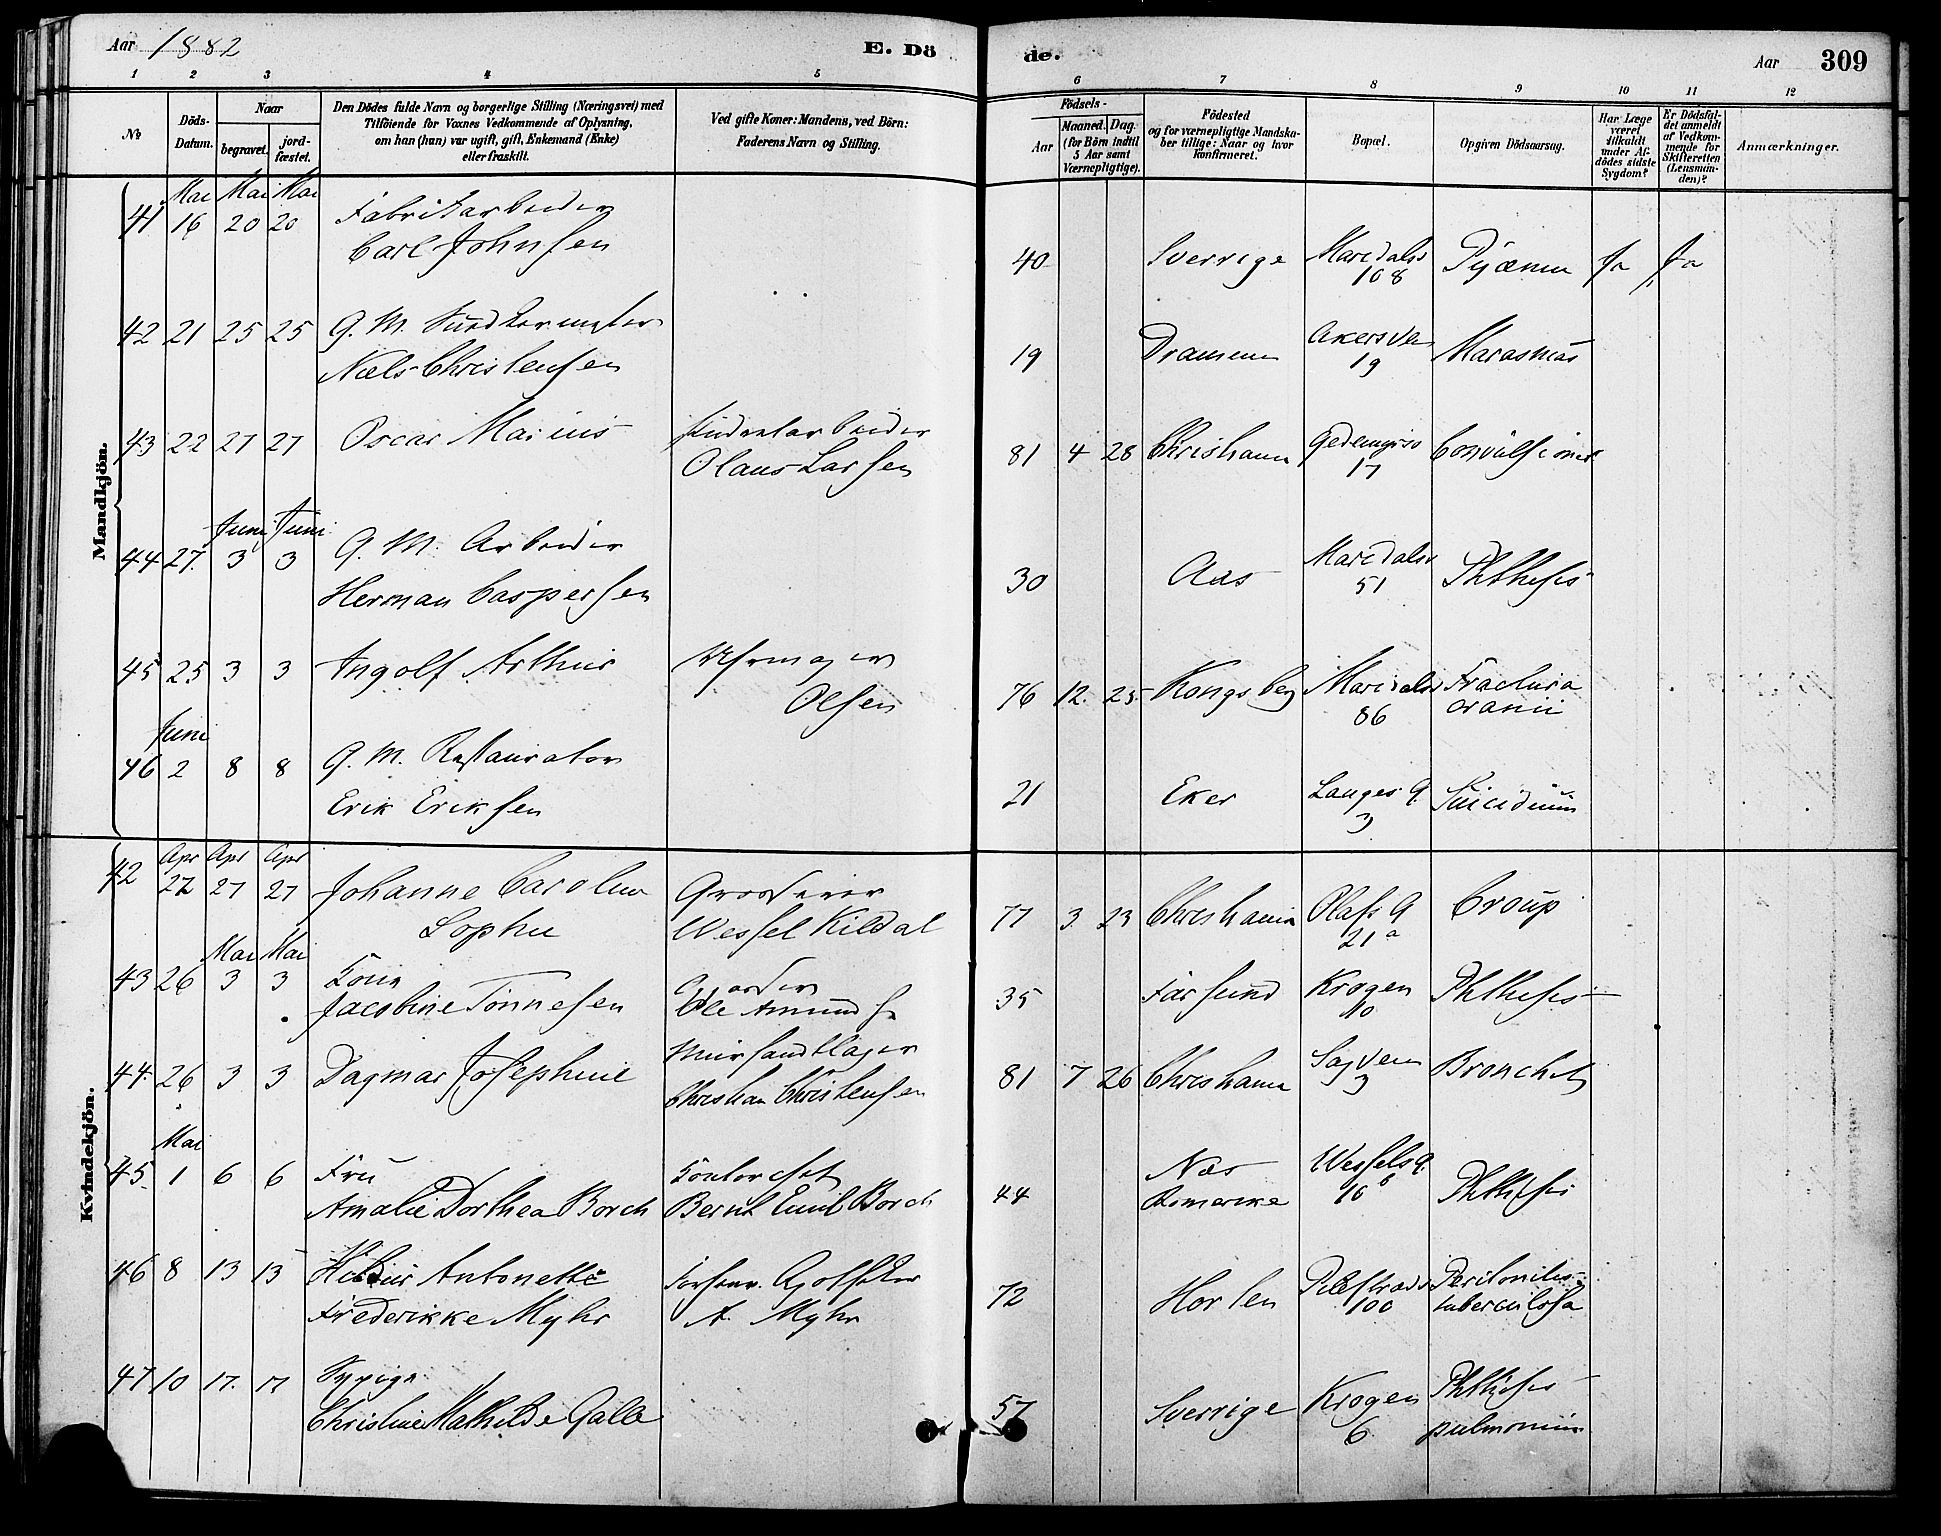 Aar 1882 E. Dö de. Aar 309
1 2 3 4 5 6 7 8 9 10 11 12
No
Döds-Datum.
Naar
begravet. jordfæstet.
Den Dödes fulde Navn og borgerlige Stilling (Næringsvei) med
Tilföiende for Voxnes Vedkommende af Oplysning,
om han (hun) var ugift, gift, Enkemand (Enke)
eller fraskilt.
Ved gifte Koner: Mandens, ved Börn:
Faderens Navn og Stilling.
Födsels-
Aar
Maaned. Dag.
(for Börn indtil
5 Aar samt
Værnepligtige).
Födested
og for værnepligtige Mandska-
ber tillige: Naar og hvor
konfirmeret.
Bopæl.
Opgiven Dödsaarsag.
Har Læge
været
tilkaldt
under Af-
dödes sidste
Sygdom?
Er Dödsfal-
det anmeldt
af Vedkom-
mende for
Skifteretten
(Lensman-
den)?
Anmærkninger.
Mandkjön.
Mai Mai Mai
41 16 20 20 Fabrikarbeider
Carl Johnsen
40 Sverrige Maridalsv 108 Pyæmia Ja Ja
42 21 25 25 G. M.
Niels Christensen
19 Drammen Akersvei 19 Marasmus
43 22 27 27 Oscar Marius
Olaus Larsen
81 4 28 Christiania 17 Convulsioner
Juni Juni
44 27. 3 3 G. M. Arbeider
Herman Caspersen
30 Aas Maridalsv 51 Phthisis
45 25 3 3 Ingolf Arthur
Olsen
76 12. 25. Kongsberg Maridalsv 86 Fractura cranii
Juni
46 2 8 8 G. M. Restaurator
Erik Eriksen
21 Eker Langes G. 3 Suicidium
Kvindekjön.
Apr Apr Apr
42 22 27 27 Johanne Caroline
Sophie
Grosserer
Wessel Kildal
77 3 23 Christiania Olafs G 21a Croup
Mai Mai
43 26 3 3 Kone
Jacobine Tönnesen
Ole Amunds
35 Farsund Krogen 10 Phthisis
44. 26 3 3 Dagmar Josephine
Christian Christensen
81 7 26 Christiania Sagveien 3 Bronchit
Mai
45. 1 6 6 Fru
Amalie Dorthea Borch
Kontorchef
Bernt Emil Borch
44 Næs Romerike Wessels g. 16b Phthisis
46 8 13 13 Antonette
Frederikke Myhr
A. Myhr
72 Horten Pilestræd 100 Peritonitis tuberculosa
47 10 17. 17 Sypige
Christine Mathilde Galle
57 Sverrige Krogen 6 Phthisis pulmonum